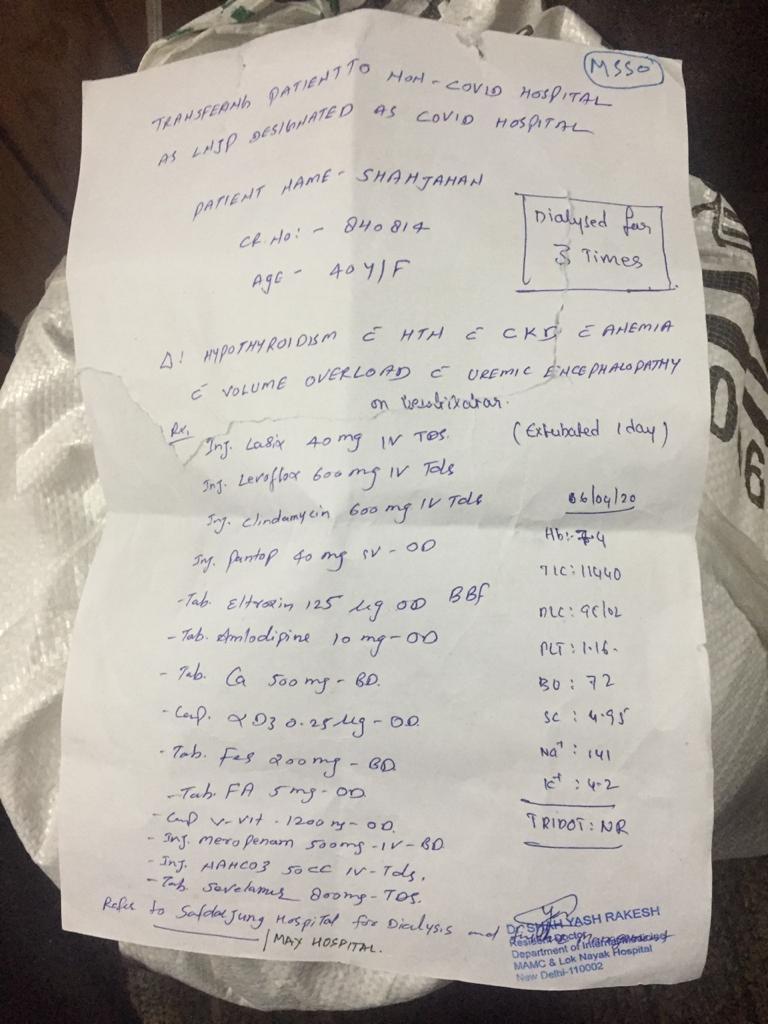 MSSO
TRANSFERING PATIENT TO NON-COVID HOSPITAL
AS LNJP DESIGNATED AS COVID HOSPITAL
PATIENT NAME - SHAHJAHAN
CR. No: - 840814
Age - 40Y/F
Dialysed for
3 Times
Δ: HYPOTHYROIDISM c̄ HTN c̄ CKD c̄ ANEMIA
c̄ VOLUME OVERLOAD c̄ UREMIC ENCEPHALOPATHY
on
(Extubated 1 day)
Rx,
Inj. Lasix 40mg IV TDS.
Inj. Levoflox 600mg IV Tds
Inj. Clindamycin 600mg IV Tds
Inj. pantop 40 mg IV - OD
- Tab. Eltroxin 125 µg OD BBf
- Tab. Amlodipine 10 mg - OD
- Tab. Ca 500mg - BD.
- Cap. αD3 0.25µg - OD.
- Tab. Fes 200mg - BD.
- Tab. FA 5mg - OD.
- Cap V-Vit - 1200 - OD.
- Inj. meropenam 500mg - IV - BD.
- Inj. NAHCO3 50CC IV - Tds.
- Tab. Sevelamer 800mg - TDS.
06/04/20
Hb:- 7.4
TLC: 11440
DLC: 98/02
PLT: 1.16
BU: 72
SC: 4.95
Na⁺: 141
K⁺: 4.2
TRIDOT: NR
Refer to Safdarjung Hospital for Dialysis and
/ MAX HOSPITAL.
Dr SHAH YASH RAKESH
Resident Doctor
Department of Internal Medicine
MAMC & Lok Nayak Hospital
New Delhi-110002